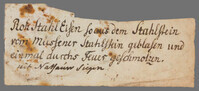 Roh Stahl Eisen so aus dem Stahlstein
vom Müssener Stahlstein geblasen und
einmal durchs Feuer geschmolzen.
Nassau Siegen